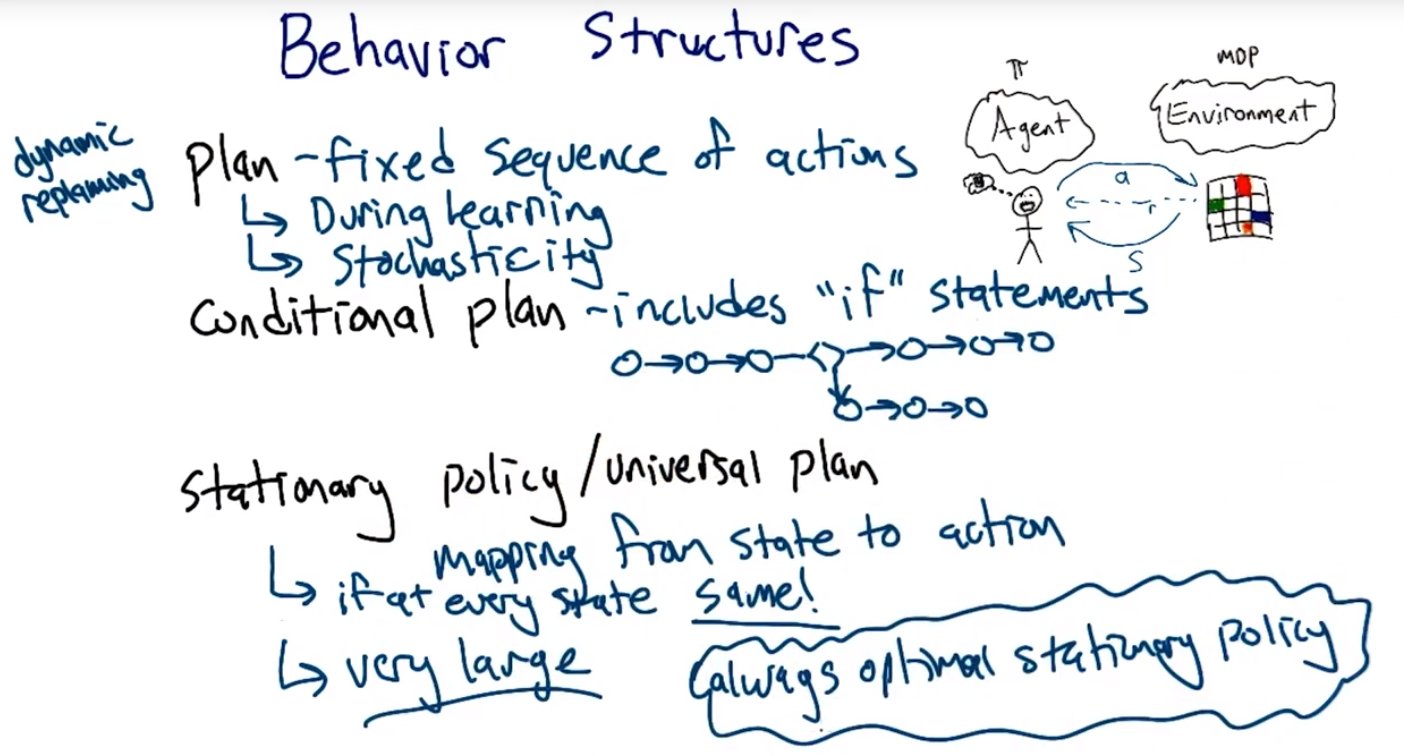 Behavior Structures
π
MDP
Agent
Environment
a
r
s
dynamic
replanning
plan - fixed sequence of actions
↳ During learning
↳ Stochasticity
conditional plan - includes "if" statements
stationary policy/universal plan
mapping from state to action
↳ if at every state same!
↳ very large
(always optimal stationary policy